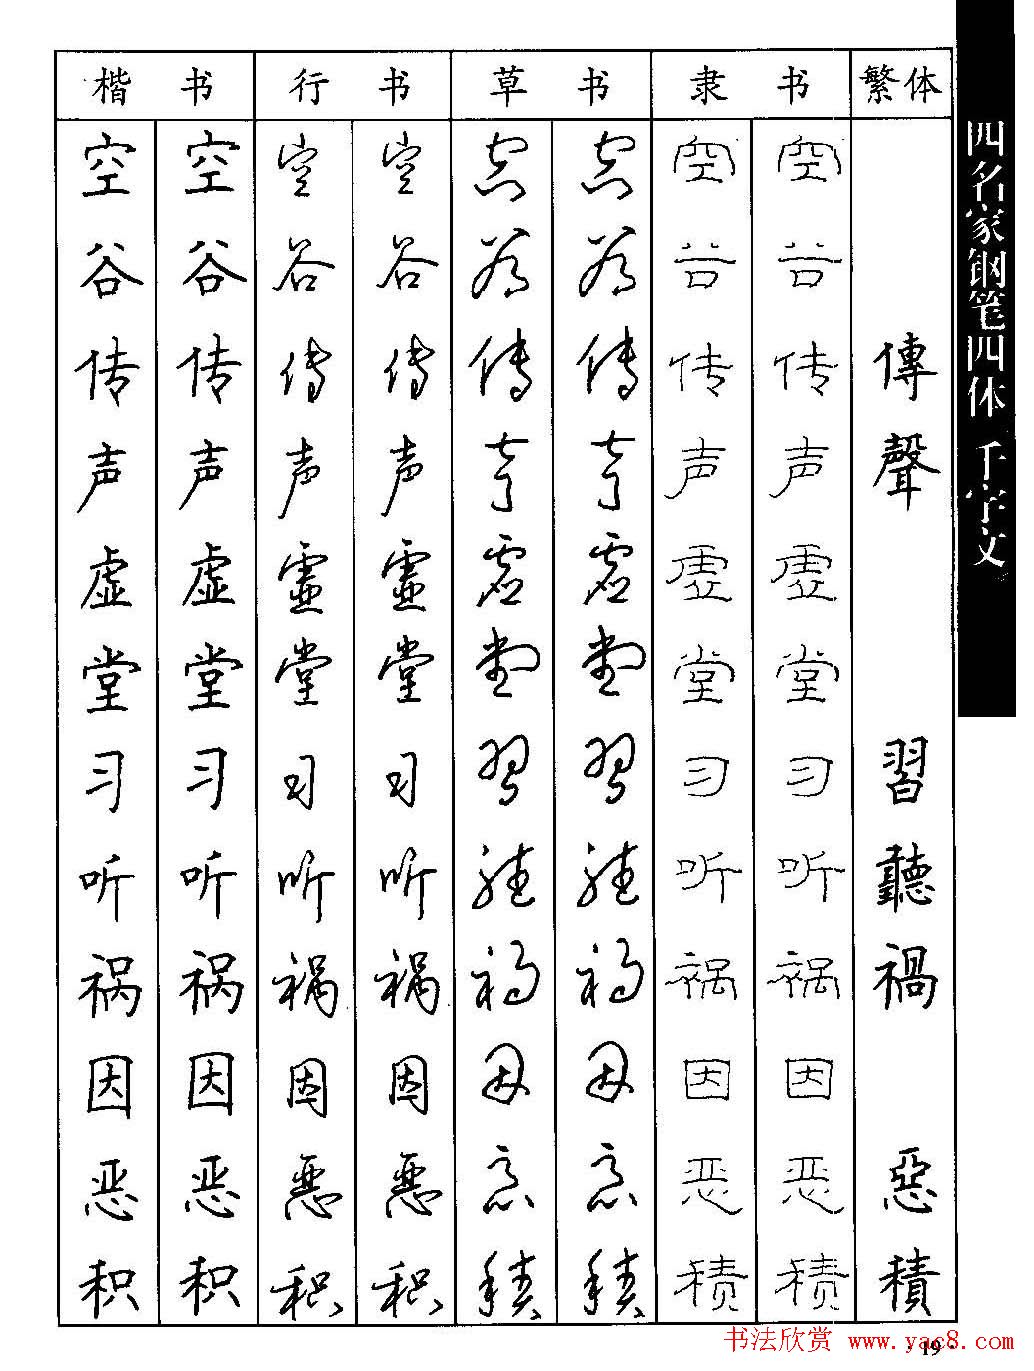 楷书 行书 草书 隶书 繁体
空 空 空 空 空 空 空 空
谷 谷 谷 谷 谷 谷 谷 谷
传 传 传 传 传 传 传 传 傳
声 声 声 声 声 声 声 声 聲
虚 虚 虚 虚 虚 虚 虚 虚
堂 堂 堂 堂 堂 堂 堂 堂
习 习 习 习 習 習 习 习 習
听 听 听 听 聽 聽 听 听 聽
祸 祸 祸 祸 祸 祸 祸 祸 禍
因 因 因 因 因 因 因 因
恶 恶 恶 恶 恶 恶 恶 恶 惡
积 积 积 积 積 積 積 積 積
四名家钢笔四体 千字文
书法欣赏 www.yac8.com
19